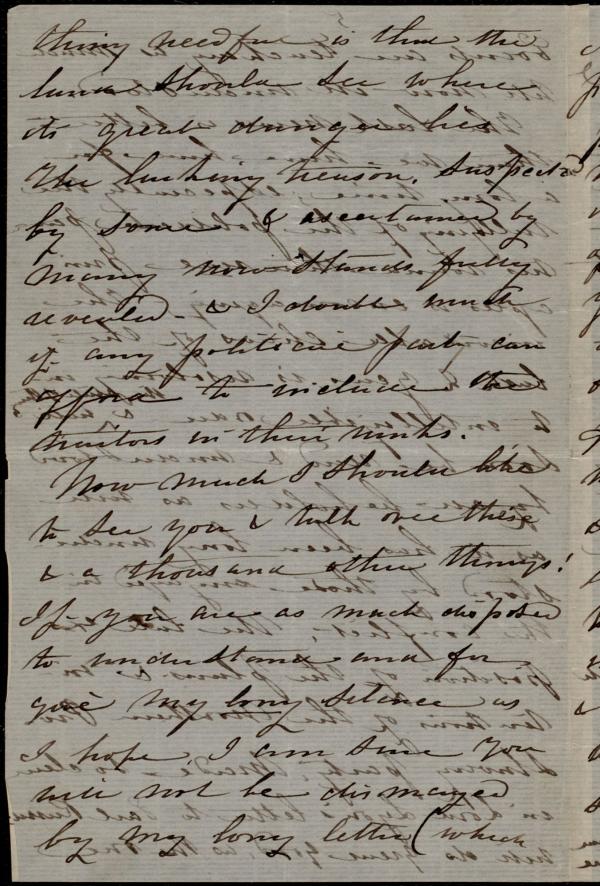 thing needful is that the
land should see where
its great danger lies
The lurking treason, suspected
by some & ascertained by
many now stands fully
revealed - & I doubt much
if any political party can
afford to include the
traitors in their ranks.
How much I should like
to see you & talk over these
& a thousand other things!
If you are as much disposed
to understand and for
give my long silence as
I hope, I am sure you
will not be dismayed
by my long letter (which